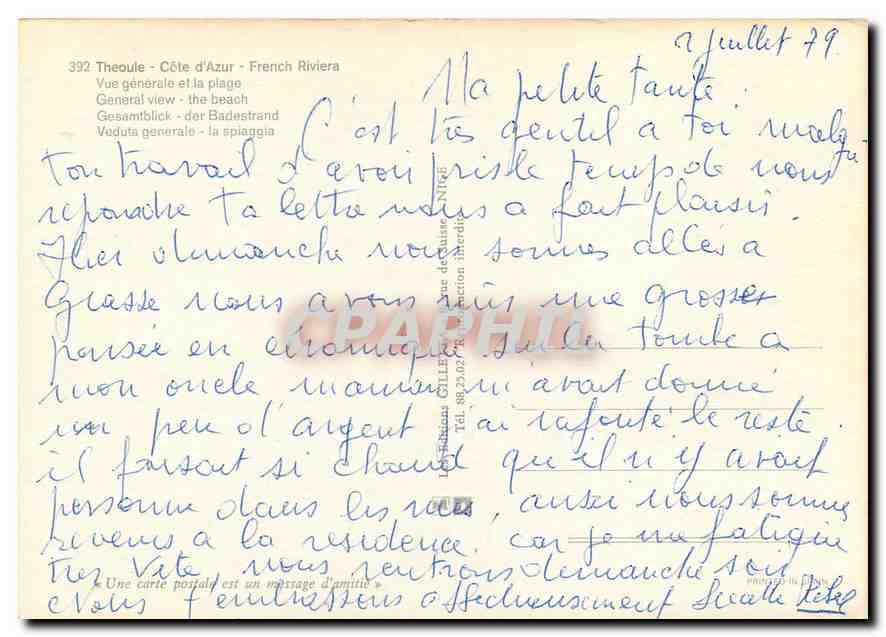 2 juillet 79
392 Theoule - Côte d'Azur - French Riviera
Vue générale et la plage
General view - the beach
Gesamtblick - der Badestrand
Veduta generale - la spiaggia
Ma petite tante.
C'est très gentil a toi malgré
ton travail d'avoir pris le temps de nous
repondre ta lettre nous a fait plaisir.
Hier dimanche nous sommes allés a
Grasse nous avons mis une grosse
pensée en céramique sur la tombe a
mon oncle maman m'avait donné
un peu d'argent j'ai rajouté le reste.
il faisait si chaud qu'il n'y avait
personne dans les rues, aussi nous sommes
revenus a la residence, car je me fatigue
très vite, nous rentrons dimanche soir
Nous t'embrassons affectueusement
« Une carte postale est un message d'amitié »
Les Editions GILLETTA rue de Suisse NICE
Tél. 88.25.02 Reproduction interdite
PRINTED IN
CPAPHIL